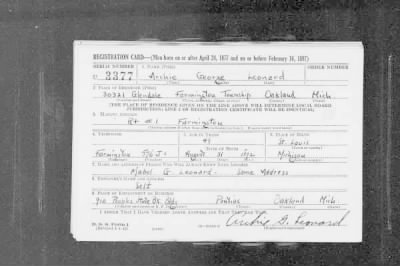 REGISTRATION CARD—(Men born on or after April 28, 1877 and on or before February 16, 1897)
SERIAL NUMBER 1. NAME (Print) ORDER NUMBER
U 3377 Archie George Leonard
(First) (Middle) (Last)
2. PLACE OF RESIDENCE (Print)
30321 Glendale Farmington Township Oakland Mich
[THE PLACE OF RESIDENCE GIVEN ON THE LINE ABOVE WILL DETERMINE LOCAL BOARD
JURISDICTION; LINE 2 OF REGISTRATION CERTIFICATE WILL BE IDENTICAL]
3. MAILING ADDRESS
Rt #1 Farmington
4. TELEPHONE 5. AGE IN YEARS 6. PLACE OF BIRTH
49 St. Louis
Farmington August 31 1892 Michigan
7. NAME AND ADDRESS OF PERSON WHO WILL ALWAYS KNOW YOUR ADDRESS
Mabel G Leonard - Same Address
8. EMPLOYER'S NAME AND ADDRESS
Self
9. PLACE OF EMPLOYMENT OR BUSINESS
910 Peoples State Bk Bldg Pontiac Oakland Mich
I AFFIRM THAT I HAVE VERIFIED ABOVE ANSWERS AND THAT THEY ARE TRUE.
D. S. S. Form 1
Archie G. Leonard